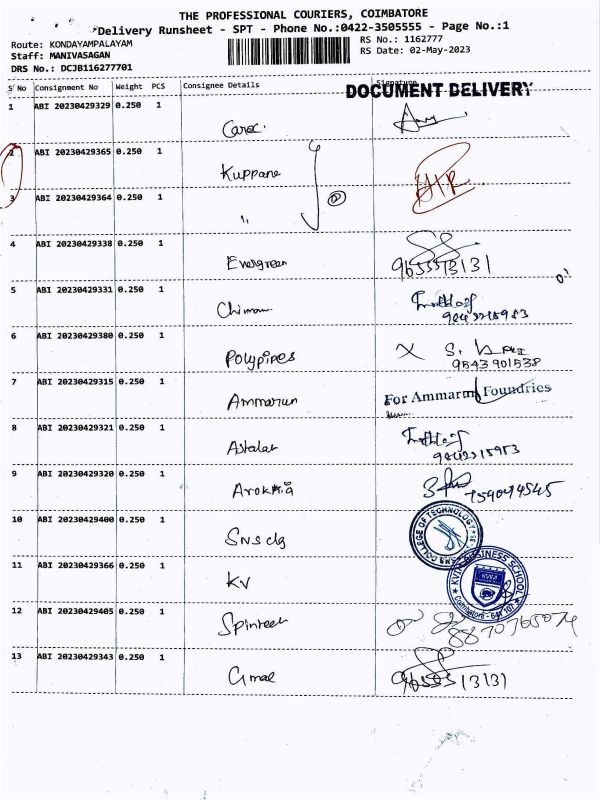 THE PROFESSIONAL COURIERS, COIMBATORE
Delivery Runsheet - SPT - Phone No.:0422-3505555 - Page No.:1
Route: KONDAYAMPALAYAM
RS No.: 1162777
Staff: MANIVASAGAN
RS Date: 02-May-2023
DRS No.: DCJB116277701
S No Consignment No Weight PCS Consignee Details Signature
DOCUMENT DELIVERY
1 ABI 20230429329 0.250 1
2 ABI 20230429365 0.250 1
Kuppane
3 ABI 20230429364 0.250 1
"
4 ABI 20230429338 0.250 1
Evergreen
9655513131
5 ABI 20230429331 0.250 1
6 ABI 20230429380 0.250 1
Polypipes
9543901538
7 ABI 20230429315 0.250 1
Ammarun
For Ammarun Foundries
8 ABI 20230429321 0.250 1
9 ABI 20230429320 0.250 1
Arokkia
10 ABI 20230429400 0.250 1
Sns clg
COLLEGE OF TECHNOLOGY
11 ABI 20230429366 0.250 1
KV
BUSINESS SCHOOL
Coimbatore - 641 107
12 ABI 20230429405 0.250 1
Spinteck
13 ABI 20230429343 0.250 1